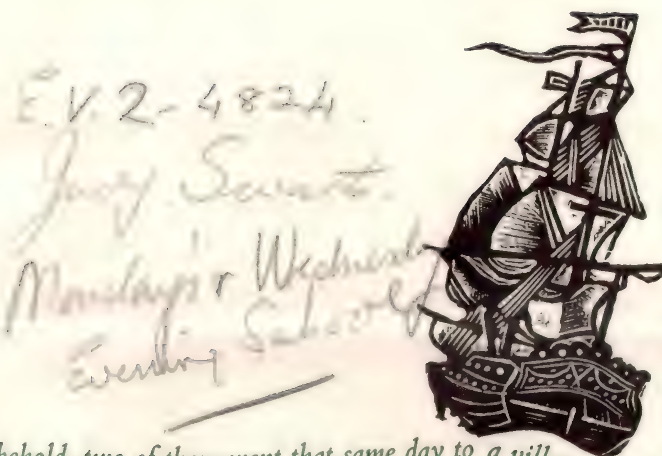 E.V. 2-4824.
Judy
Mondays & Wednesday
Evening School
behold, two of them went that same day to a vill